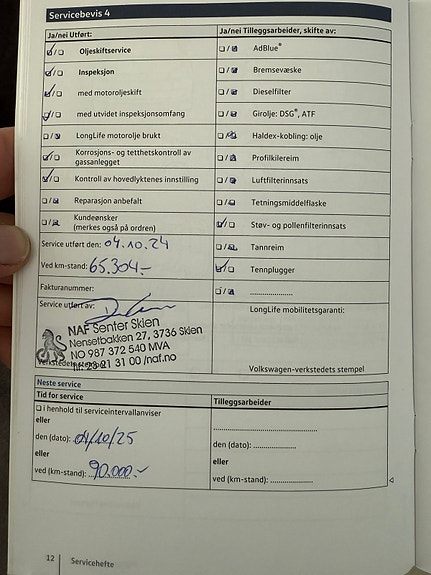 Servicebevis 4
Ja/nei Utført:
Ja/nei Tilleggsarbeider, skifte av:
☑/☐ Oljeskiftservice
☐/☑ AdBlue®
☑/☐ Inspeksjon
☐/☑ Bremsevæske
☑/☐ med motoroljeskift
☐/☑ Dieselfilter
☑/☐ med utvidet inspeksjonsomfang
☐/☑ Girolje: DSG®, ATF
☐/☑ LongLife motorolje brukt
☐/☑ Haldex-kobling: olje
☑/☐ Korrosjons- og tetthetskontroll av
gassanlegget
☐/☑ Profilkilereim
☑/☐ Kontroll av hovedlyktenes innstilling
☐/☑ Luftfilterinnsats
☐/☑ Reparasjon anbefalt
☐/☑ Tetningsmiddelflaske
☐/☑ Kundeønsker
(merkes også på ordren)
☑/☐ Støv- og pollenfilterinnsats
Service utført den: 04.10.24
☐/☑ Tannreim
Ved km-stand: 65.304.-
☑/☐ Tennplugger
Fakturanummer:
☐/☑ ......................
Service utført av:
LongLife mobilitetsgaranti:
NAF Senter Skien
Nensetbakken 27, 3736 Skien
NO 987 372 540 MVA
Tlf: 23 21 31 00 /naf.no
Volkswagen-verkstedets stempel
Neste service
Tid for service
Tilleggsarbeider
☐ i henhold til serviceintervallanviser
eller
den (dato): 04/10/25
den (dato): ......................
eller
eller
ved (km-stand): 90.000.-
ved (km-stand): ......................
12 Servicehefte